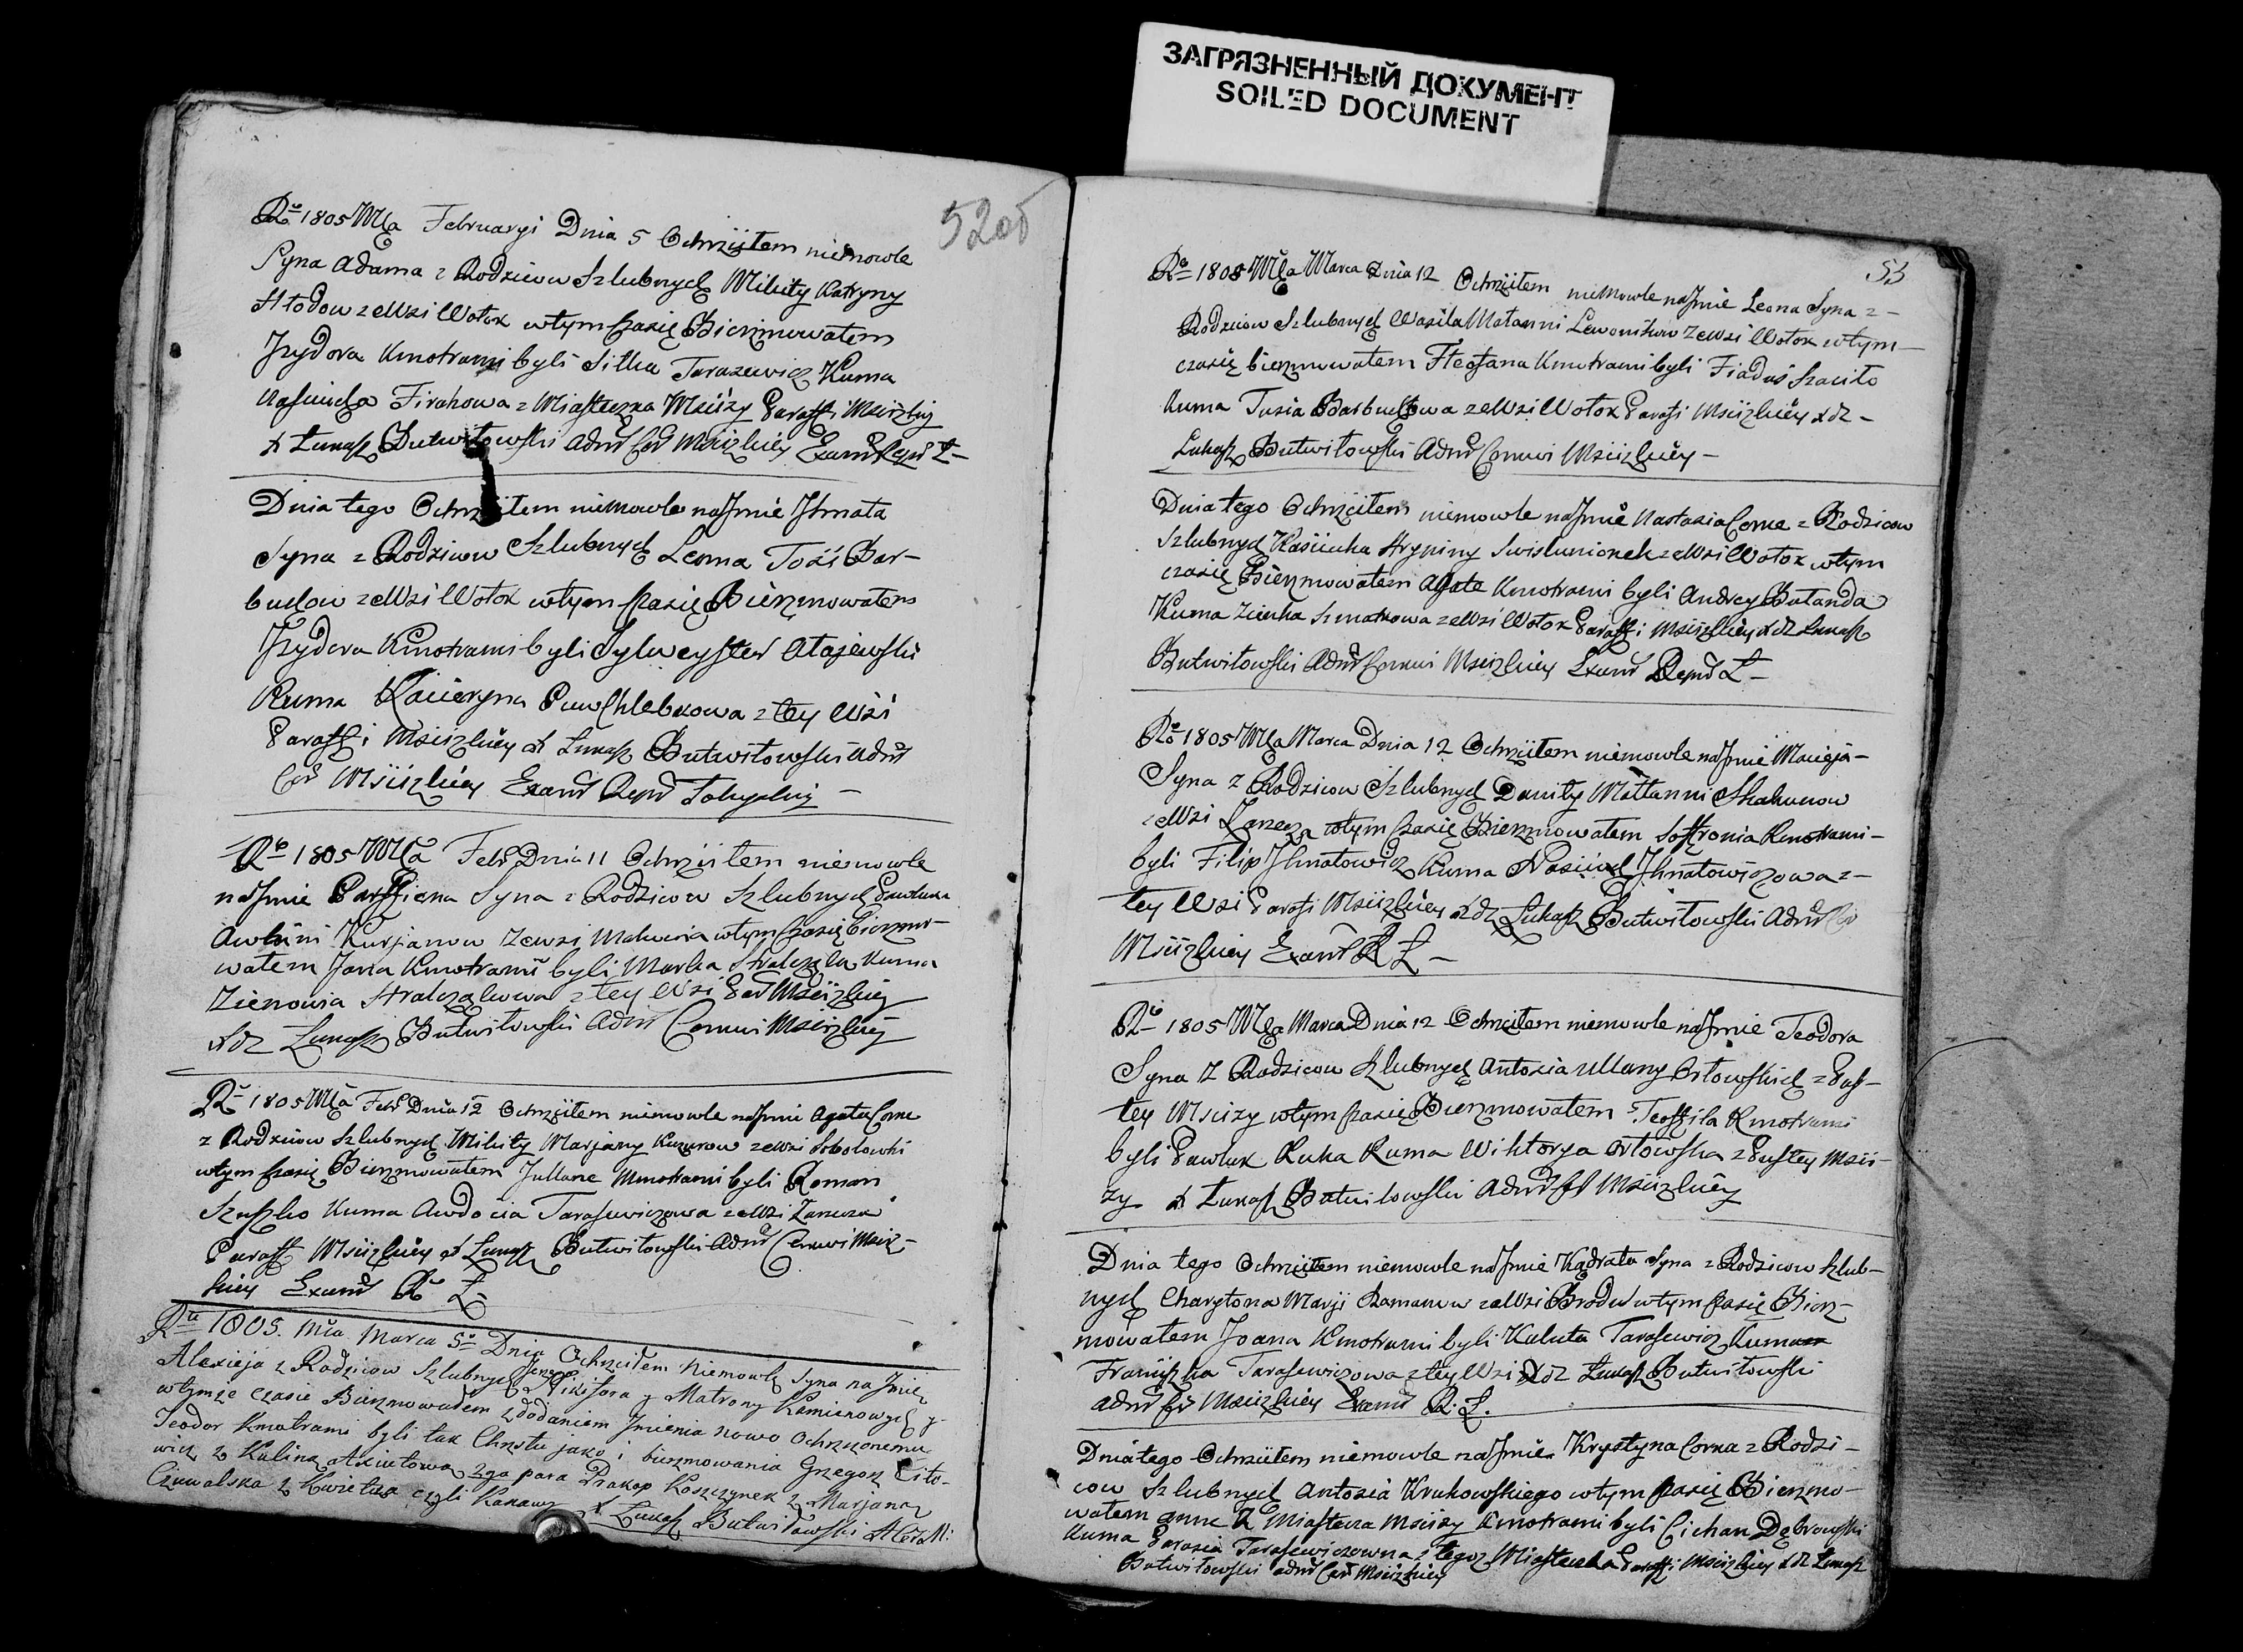 ЗАГРЯЗНЕННЫЙ ДОКУМЕНТ
SOILED DOCUMENT
52об
Rº 1805 Mca Februaryi Dnia 5 Ochrzciłem niemowle
Syna Adama z Rodziców Szlubnych Mikity Katryny
Hłodow ze Wsi Wołok w tym czasie Bierzmowałem
Jzydora Kmotrami byli Silka Tarasewicz Kuma
Firahowa z Miasteczka Mściży Paraffi Mścizkiy
X Łukasz Butwiłowski Admr Cer Mścizkiey
Dnia tego Ochrzciłem niemowle na Jmie Jhnata
Syna z Rodziców Szlubnych Leona Tosi Bar-
budow ze Wsi Wołok w tym czasie Bierzmowałem
Jzydora Kmotrami byli Sylweyster Atajewski
Kuma Kacieryna z tey Wsi
Paraffi Mścizkiey X Łukasz Butwiłowski Admr
Cer Mścizkiey
Rº 1805 Mca Febr Dnia 11 Ochrzciłem niemowle
na Jmie Parffiena Syna z Rodziców Szlubnych Pawluka
Kurjanow ze Wsi w tym czasie bierzmo-
wałem Jana Kmotrami byli Marka Kuma
Zienowia z tey Wsi Par Mścizkiey
Xdz Łukasz Butwiłowski Admr Cerkwi Mścizkiey
Rº 1805 Mca Febr Dnia 12 Ochrzciłem niemowle na Jmie Agata Corke
z Rodziców Szlubnych Mikity Marjany ze Wsi
w tym czasie Bierzmowałem Jullane Kmotrami byli Roman
Szuszko Kuma Awdocia Tarasewiczowa ze Wsi
Paraff Mścizkiey X Łukasz Butwiłowski Admr Cerkwi Mściz-
kiey
Rº 1805. Mca Marca 5º Dnia Ochrzciłem Niemowle Syna na Jmie
Alexieja z Rodzicow Szlubnych Nikifora y Matrony Kamienowych y
w tymże czasie Bierzmowałem z dodaniem Jmienia nowo Ochrzczonemu
Teodor Kmotrami byli tak Chrztu jako i bierzmowania Grzegorz Tito-
wicz z Kuliną 2ga para Prakop z Marjaną
Czuwalska z czyli X Łukasz Butwiłowski
53
Rº 1805 Mca Marca Dnia 12 Ochrzciłem niemowle na Jmie Leona Syna z
Rodziców Szlubnych Wasila Matanni ze Wsi Wołok w tym
czasie bierzmowałem Stefana Kmotrami byli Fiaduś Szaciło
Kuma Tusia Barbudowa ze Wsi Wołok Parafi Mścizkiey Xdz
Łukasz Butwiłowski Admr Cerkwi Mścizkiey
Dnia tego Ochrzciłem niemowle na Jmie Nastazia Corke z Rodzicow
Szlubnych Hrypiny ze Wsi Wołok w tym
czasie Bierzmowałem Agate Kmotrami byli Andrey Butanda
Kuma ze Wsi Wołok Paraffi Mścizkiey Xdz Łukasz
Butwiłowski Admr Cerkwi Mścizkiey
Rº 1805 Mca Marca Dnia 12 Ochrzciłem niemowle na Jmie Macieja
Syna z Rodzicow Szlubnych Daniły Matanni Skakunow
ze Wsi w tym czasie Bierzmowałem Soffronia Kmotrami
byli Filip Jhnatowicz Kuma Jhnatowiczowa z
tey Wsi Parafi Mścizkiey Xdz Łukasz Butwiłowski Admr
Mścizkiey
Rº 1805 Mca Marca Dnia 12 Ochrzciłem niemowle na Jmie Teodora
Syna z Rodzicow Szlubnych Antosia Ullany Orłowskich z Pus-
tey Mściży w tym czasie Bierzmowałem Teoffila Kmotrami
byli Pawluk Ruka Kuma Wiktorya Orłowska z Pustey Mści-
ży X Łukasz Butwiłowski Admr Mścizkiey
Dnia tego Ochrzciłem niemowle na Jmie Kądrata Syna z Rodzicow szlub-
nych Charytona Maryi Ramanow ze Wsi Brodu w tym czasie Bierz-
mowałem Joana Kmotrami byli Kaluta Tarasewicz Kuma
Franciszka Tarasewiczowa z tey Wsi Xdz Łukasz Butwiłowski
Admr Mścizkiey R. Ł.
Dnia tego Ochrzciłem niemowle na Jmie Krystyna Corka z Rodzi-
cow Szlubnych Antosia Krukowskiego w tym czasie Bierzmo-
wałem Anne Z Miasteczka Mściży Kmotrami byli Cichan Dąbrowski
Kuma Parasia Tarasewiczowna z tegoz Miasteczka Paraffi Mścizkiey Xdz Łukasz
Butwiłowski Admr Cer Mścizkiey